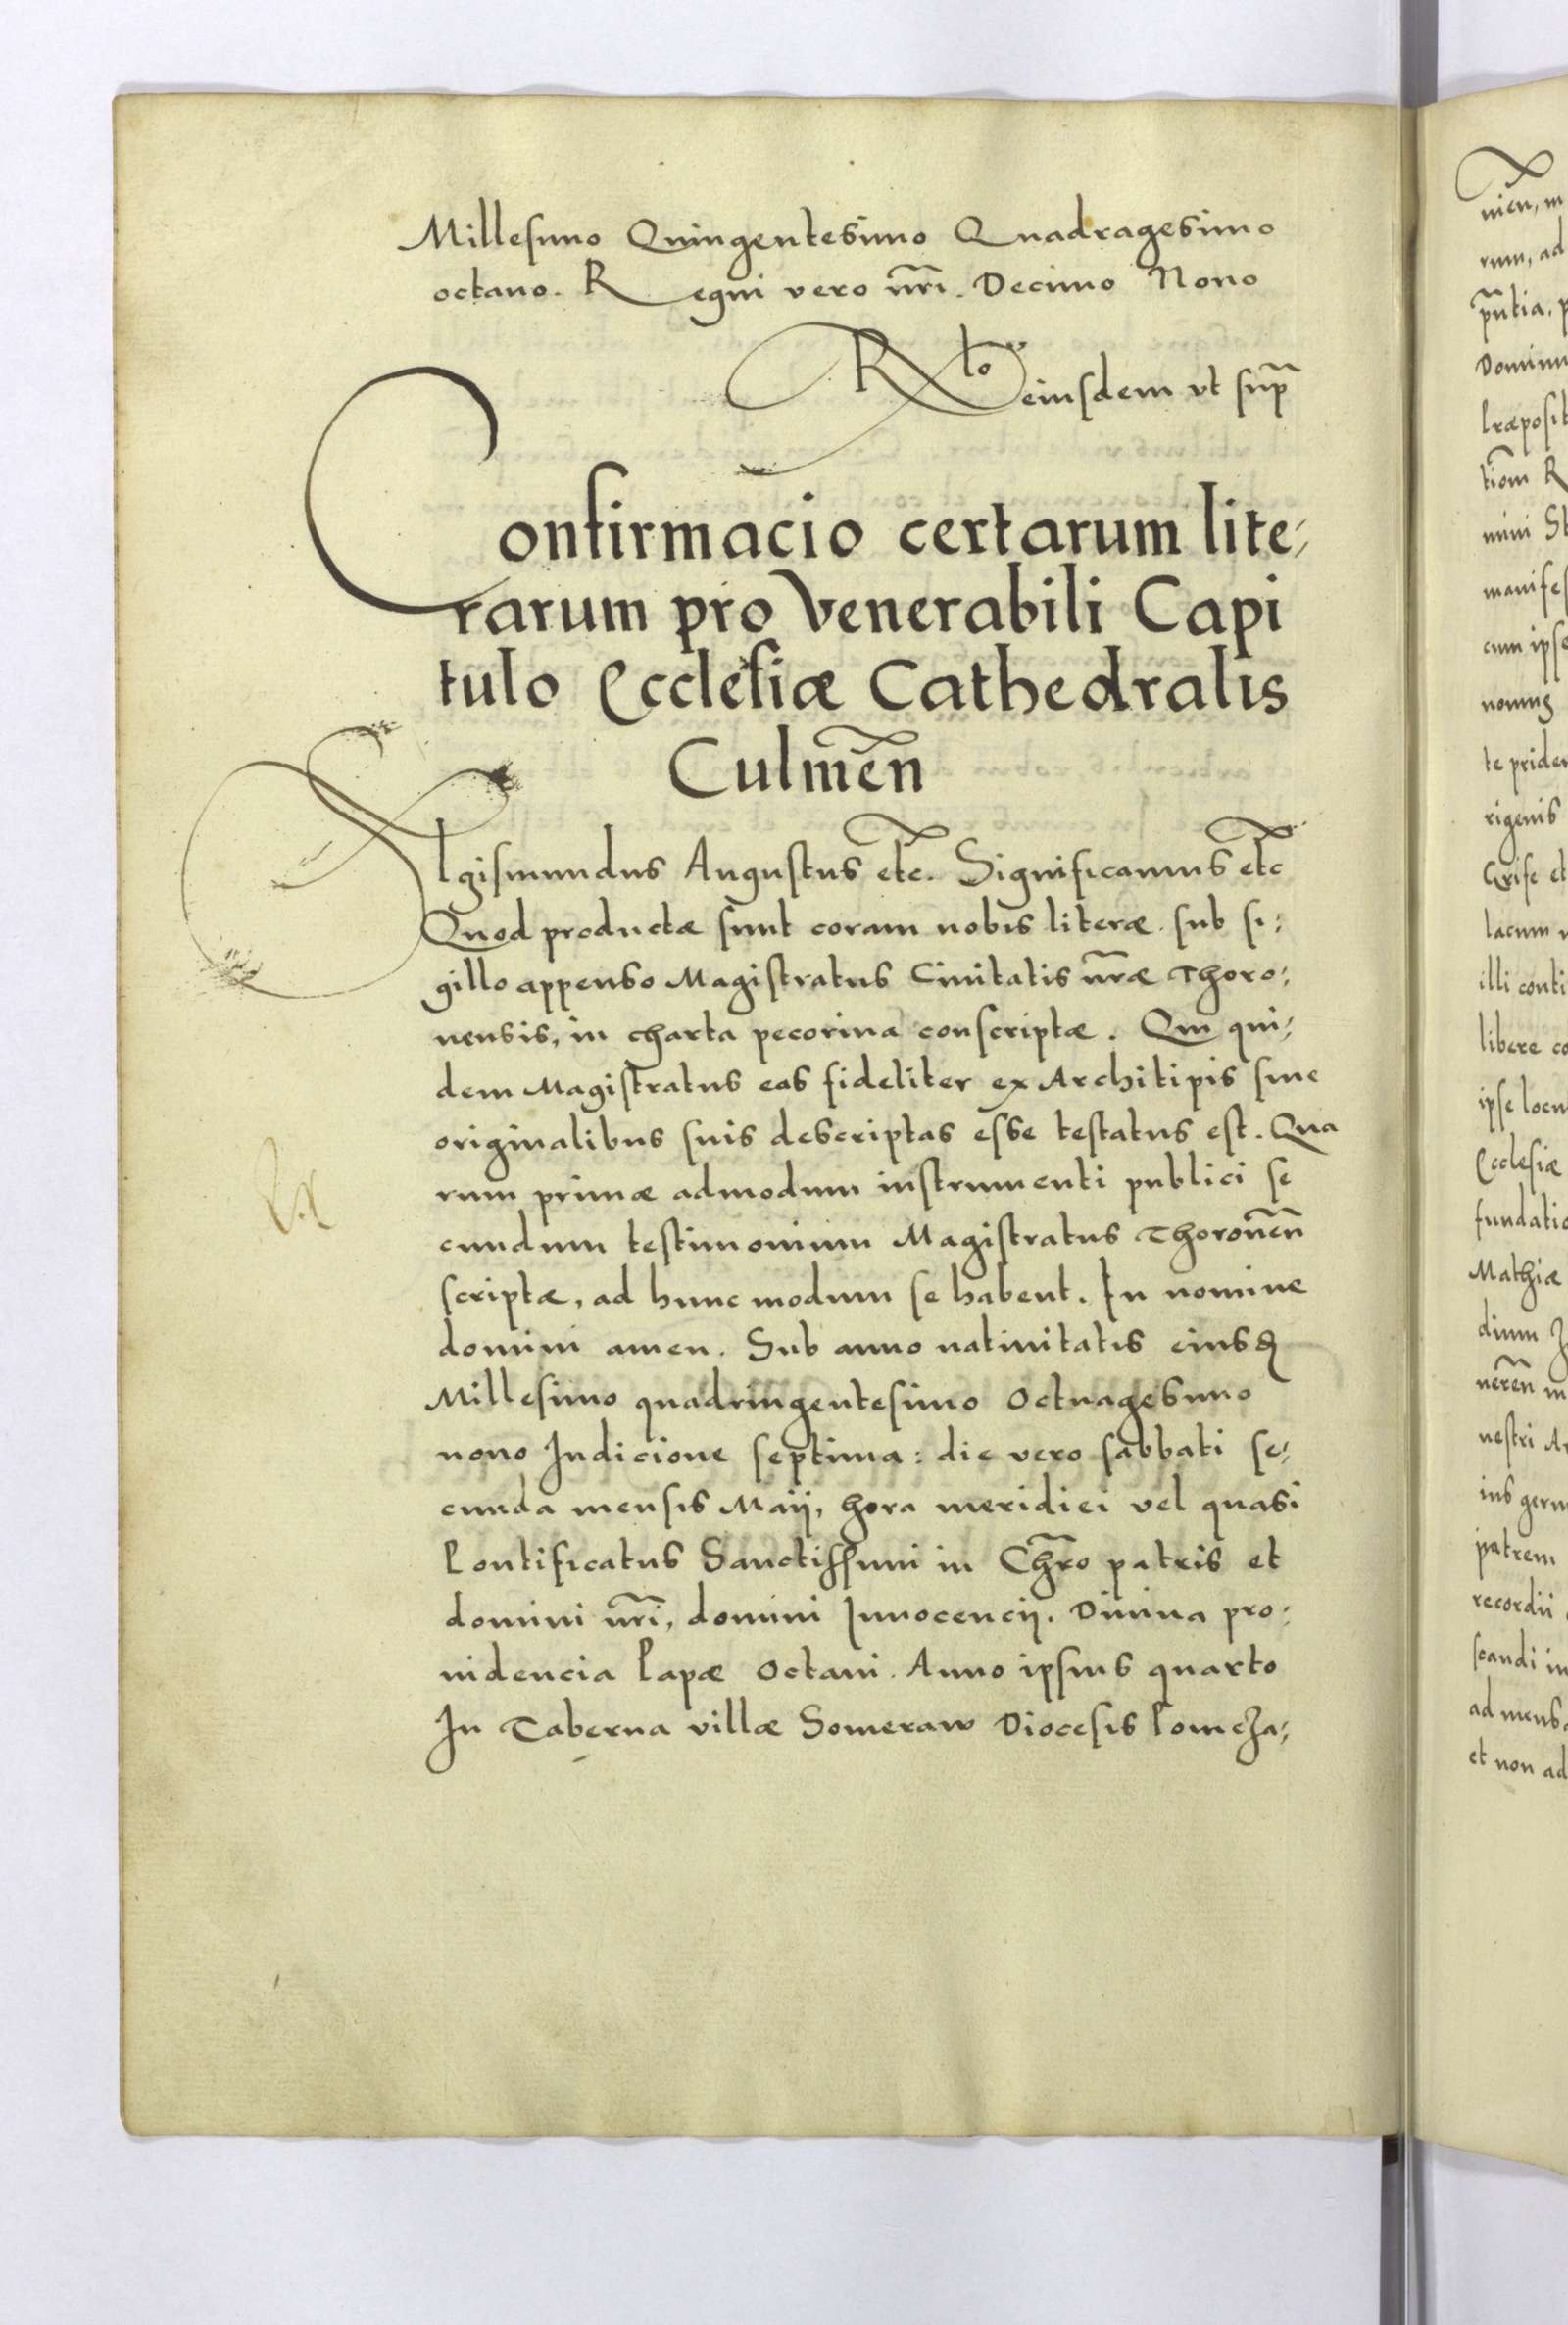 Millesimo Quingentesimo Quadragesimo
octauo. Regni vero nr̃i. Decimo Nono
R̃lo eiusdem vt sup̃
Confirmacio certarum lite⸗
rarum pro Venerabili Capi
tulo Ecclesiæ Cathedralis
Culmen̄
SIgismundus Augustus etc̃. Significamus etc̃
Quod productæ sunt coram nobis literæ sub si⸗
gillo appenso Magistratus Ciuitatis nr̃æ Thoro⸗
nensis, in charta pecorina conscriptæ. Qui qui⸗
dem Magistratus eas fideliter ex Architipis siue
originalibus suis descriptas esse testatus est. Qua
rum primæ admodum instrumenti publici se
cundum testimonium Magistratus Thoronen̄
scriptæ, ad hunc modum se habent. In nomine
domini amen. Sub anno natiuitatis eiusd
Millesimo quadringentesimo Octuagesimo
nono Indicione septima: die vero sabbati se⸗
cunda mensis Maij, hora meridiei vel quasi
Pontificatus Sanctissimi in Chr̃o patris et
domini nr̃i, domini Innocencij. Diuina pro⸗
uidencia Papæ Octaui. Anno ipsius quarto
In Taberna villæ Someraw Diocesis Pomeza⸗
nien̄, in
rum, ad
pñtia, p
Dominu
Præposit
tiom R
mini St
manifes
cum ipse
nomus
te pride
rigenis
Grife et
lacum
illi conti
libere co
ipse locu
Ecclesiæ
fundatio
Mathiæ
dium J
neren̄ m
nestri Ar
ius germ
patrem
recordii
scandi in
ad mensa
et non ad